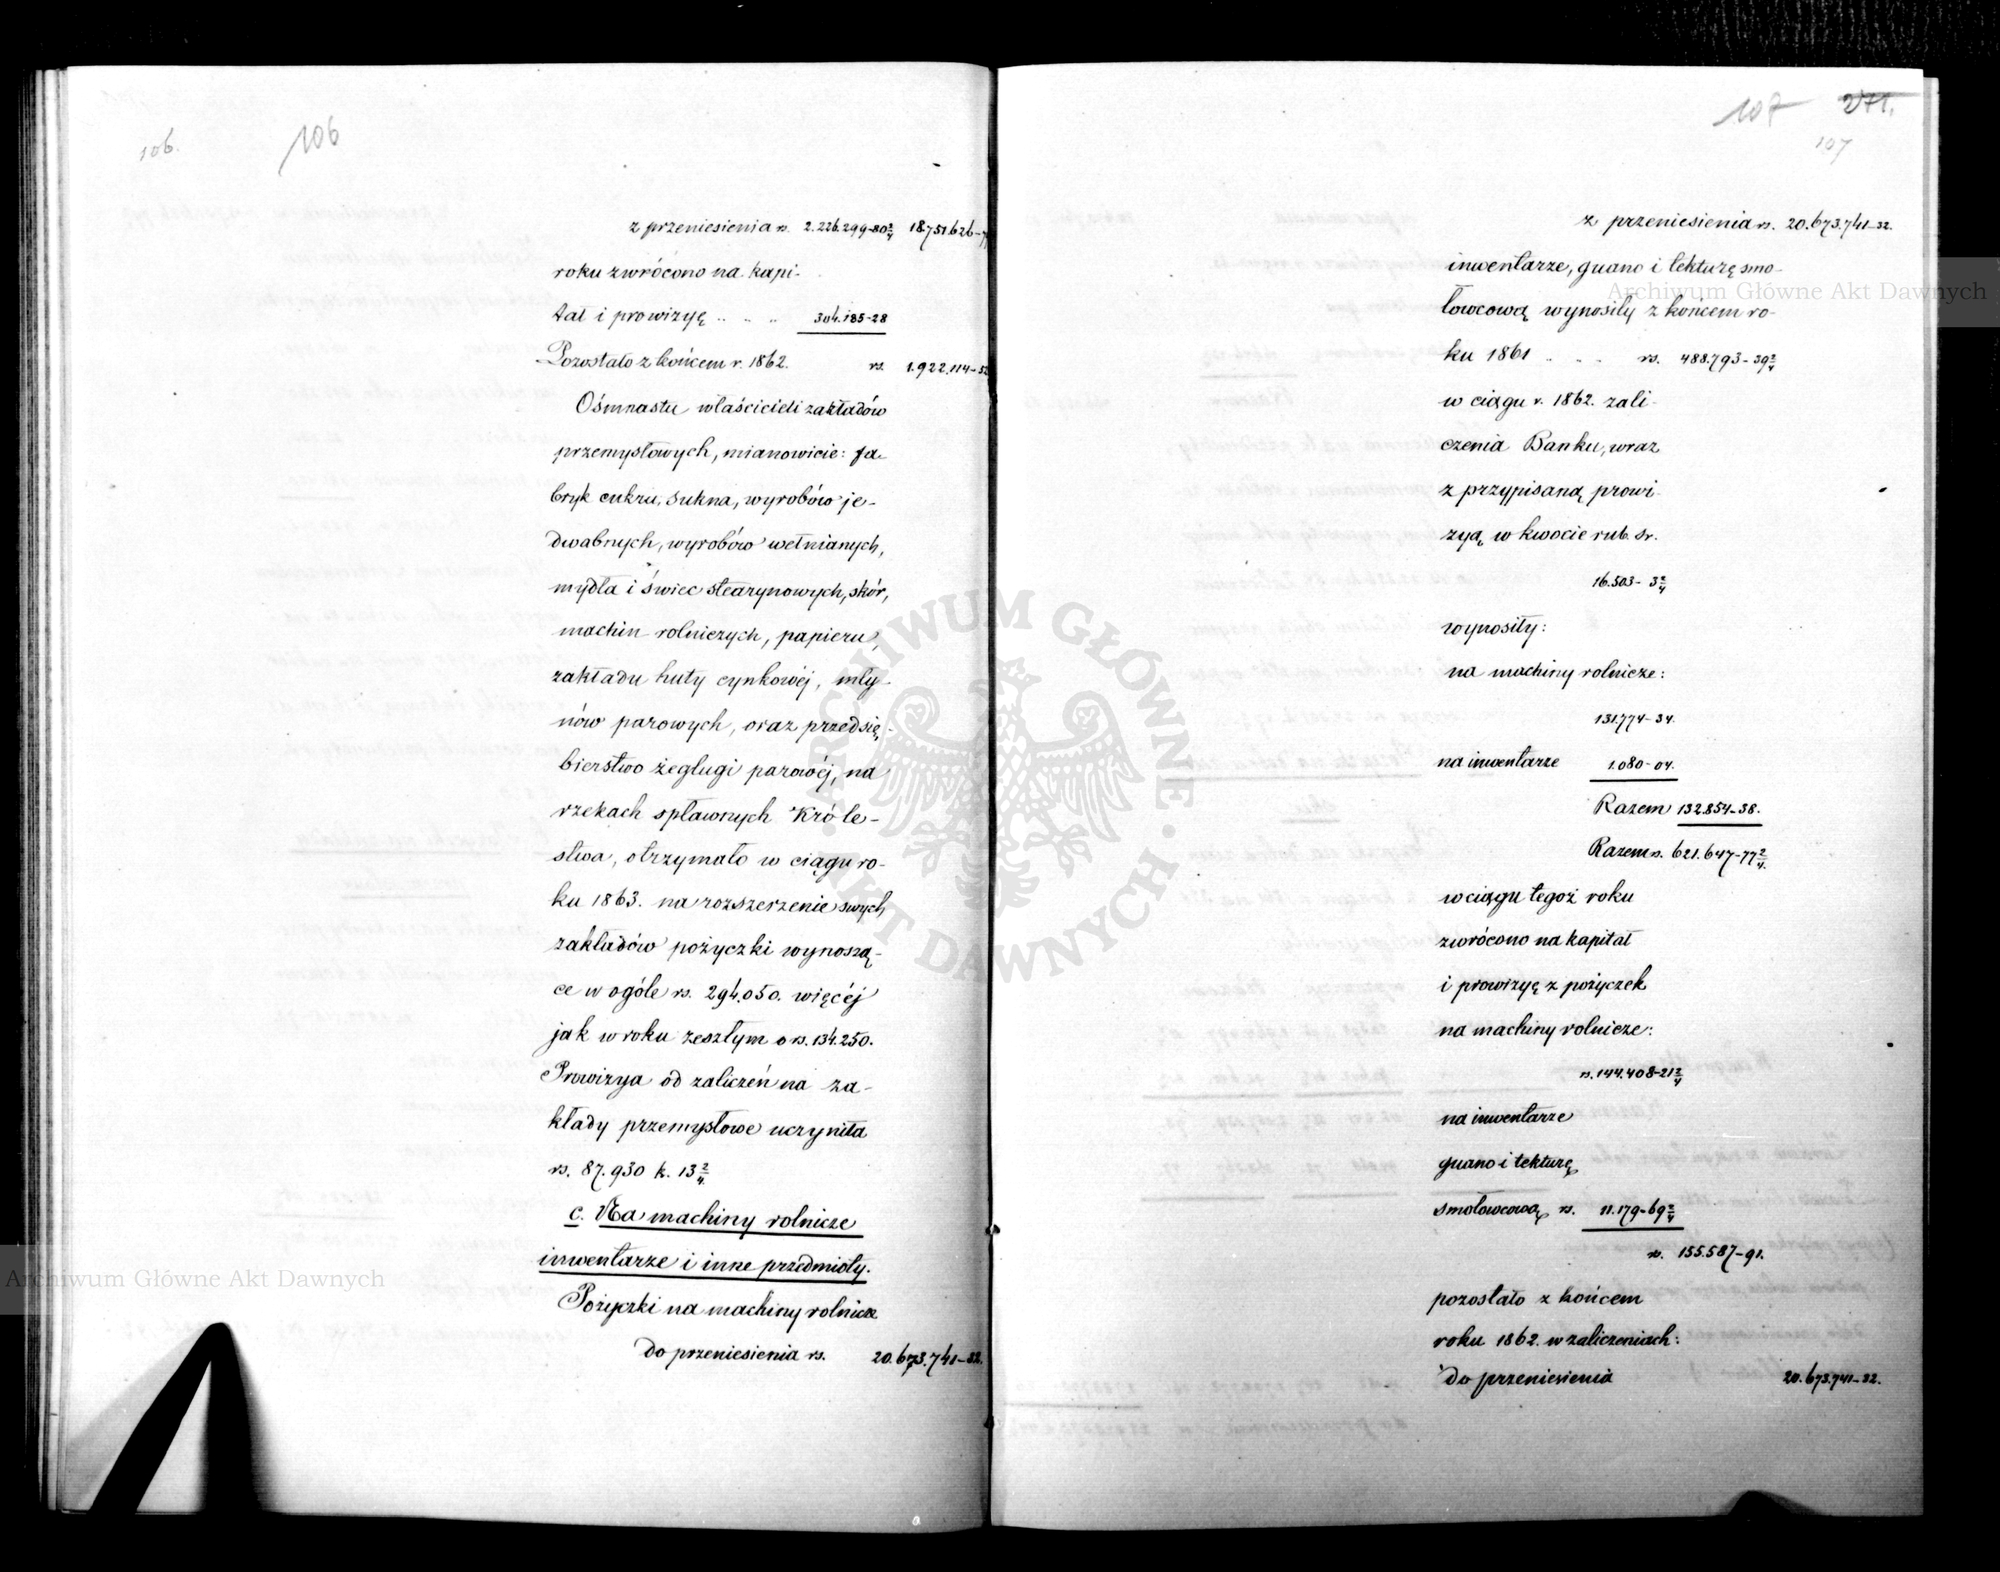 106.
106
z przeniesienia rs. 2.226.299-80 2/4 18.751.626-7
roku zwrócono na kapi-
tał i prowizyę . . . . 304.185-28
Pozostało z końcem r. 1862. rs. 1.922.114-52
Ośmnastu właścicieli zakładów
przemysłowych, mianowicie: fa-
bryk cukru, sukna, wyrobów je-
dwabnych, wyrobów wełnianych,
mydła i świec stearynowych, skór,
machin rolniczych, papieru,
zakładu huty cynkowéj, mły-
nów parowych, oraz przedsię-
bierstwo żeglugi parowéj, na
rzekach spławnych Króle-
stwa, otrzymało w ciągu ro-
ku 1863. na rozszerzenie swych
zakładów pożyczki wynoszą-
ce w ogóle rs. 294.050. więcéj
jak w roku zeszłym o rs. 134.250.
Prowizya od zaliczeń na za-
kłady przemysłowe uczyniła
rs. 87.930 k. 13 2/4.
c. Na machiny rolnicze
inwentarze i inne przedmioty.
Pożyczki na machiny rolnicze
do przeniesienia rs. 20.673.741-32.
107 271.
107
z przeniesienia rs. 20.673.741-32.
inwentarze, guano i tekturę smo-
łowcową wynosiły z końcem ro-
ku 1861 . . . rs. 488.793-39 2/4
w ciągu r. 1862. zali-
czenia Banku, wraz
z przypisaną prowi-
zyą w kwocie rub. sr.
16.503- 3 2/4
wynosiły:
na machiny rolnicze:
131.774-34.
na inwentarze 1.080-04.
Razem 132.854-38.
Razem rs. 621.647-77 2/4.
w ciągu tegoż roku
zwrócono na kapitał
i prowizyę z pożyczek
na machiny rolnicze:
rs. 144.408-21 2/4
na inwentarze
guano i tekturę
smołowcową rs. 11.179-69 2/4
rs. 155.587-91.
pozostało z końcem
roku 1862. w zaliczeniach:
do przeniesienia 20.673.741-32.
Archiwum Główne Akt Dawnych
Archiwum Główne Akt Dawnych
ARCHIWUM GŁÓWNE
AKT DAWNYCH